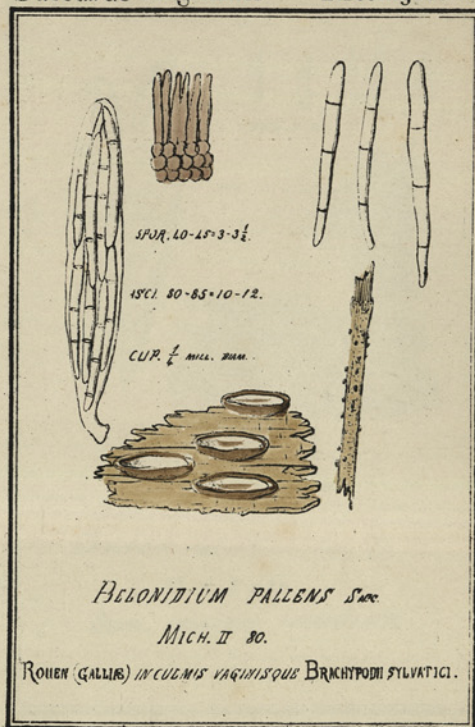 SPOR. 40-45=3-3½.
ASCI. 80-85=10-12.
CUP. MILL. DIAM.
BELONIDIUM PALLENS SACC.
MICH. II 80.
ROUEN (GALLIÆ) IN CULMIS VAGINISQUE BRACHYPODII SYLVATICI.